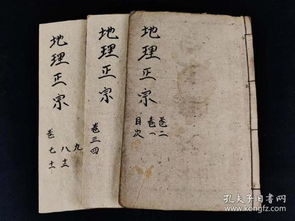 地理正宗
卷二
卷一
目次
地理正宗
卷三四
地理正宗
九
八
卷七
孔夫子旧书网